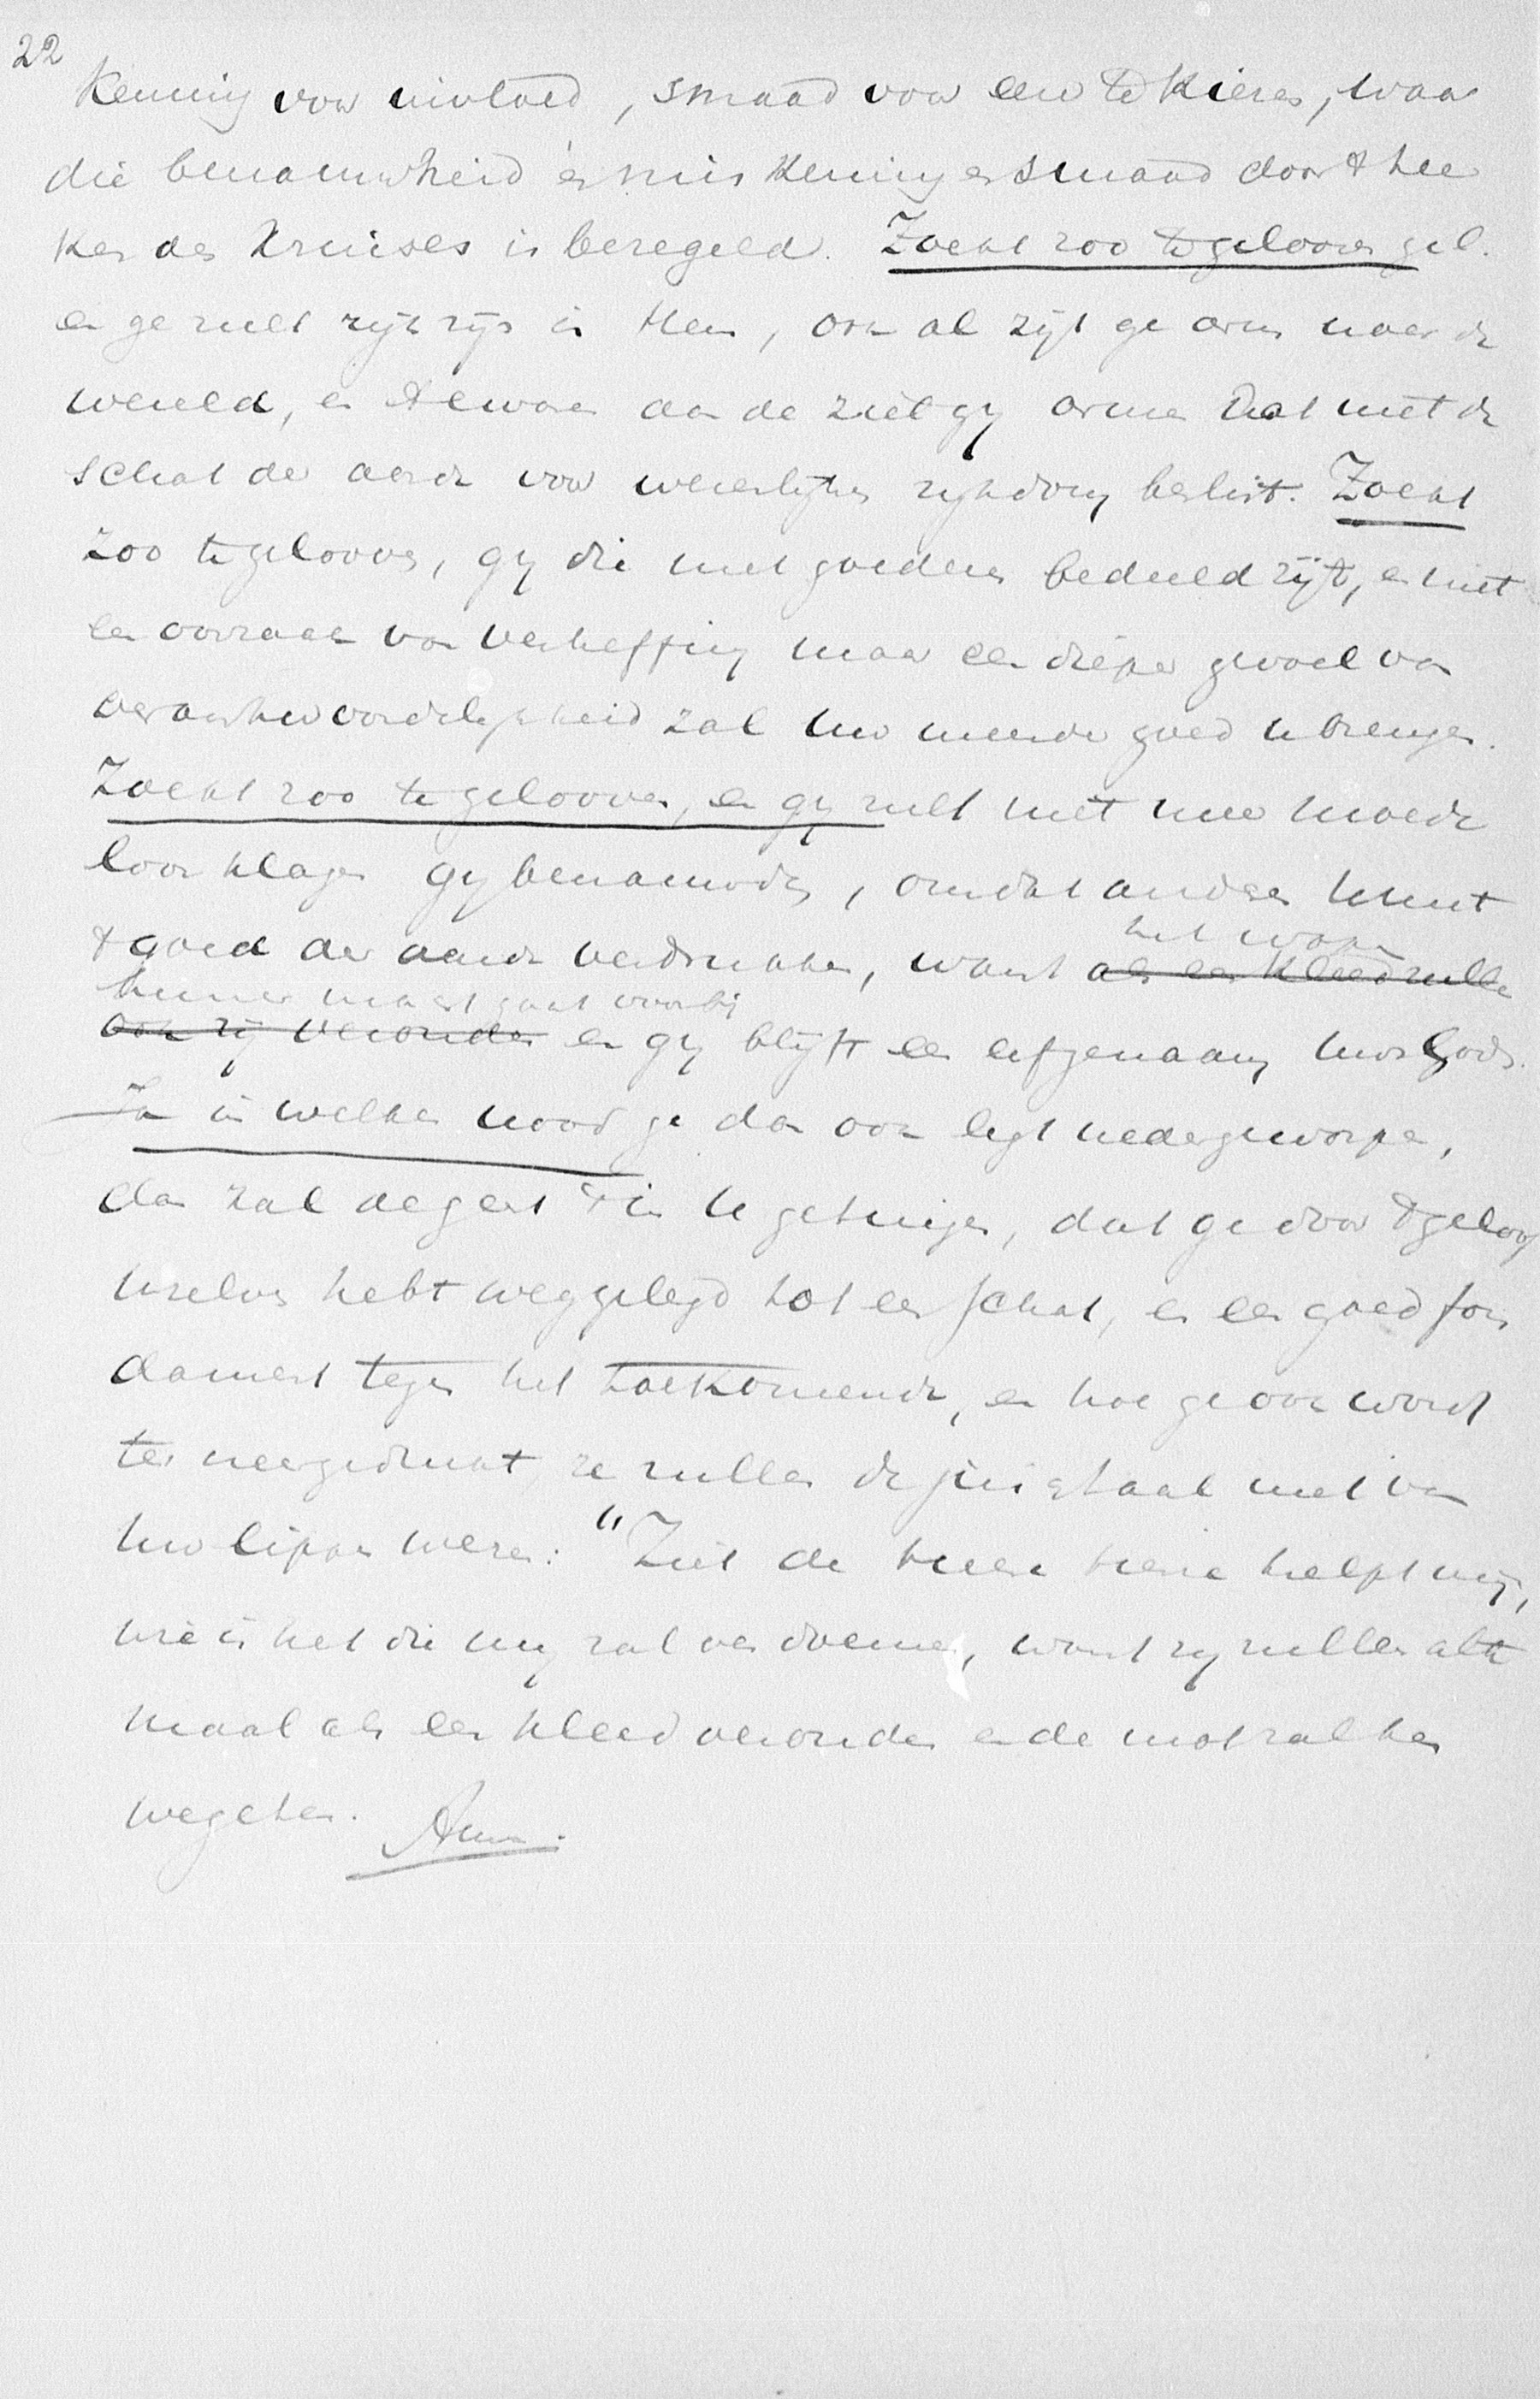 22
kenning voor invloed, smaad voor eer te kiezen, waar
die benauwheid en miskenning en smaad door 't tee
ken des kruises is bezegeld. Zoekt zoo te gelooven gel.
en ge zult rijk zijn in Hem, ook al zijt ge arm naar de
wereld, en aan de ziel gy armen dat niet de
schat der aarde voor wezenlyken rykdom beslist. Zoekt
zoo te gelooven, gy die met goederen bedeeld zijt, en niet
een oorzaak van verheffing maar een dieper gevoel van
verantwoordelykheid zal uw meerder goed u brengen.
Zoekt zoo te gelooven, en gy zult niet meer moede
loos klagen gy benauwden, omdat anderen kunt
't goed der aarde verdrukken, want als een kleed zullen
het wapen
hunner macht gaat voorbij
ook zij verouden en gy blijft een erfgenaam uws Gods.
Ja in welken nood ge dan ook ligt nedergeworpen,
dan zal de geest 't in U getuigen, dat ge door 't geloof
uzelven hebt weggelegd tot een schat, en een goed fon
dament tegen het toekomende, en hoe ge ook wordt
ter neergedrukt, ze zullen de juichtaal niet van
uw lippen weren: "Ziet de Heere Heere helpt mij,
wie is het die my zal verdoemen, want zy zullen alte
maal als een kleed verouden en de mot zal hen
wegeten. Amen.